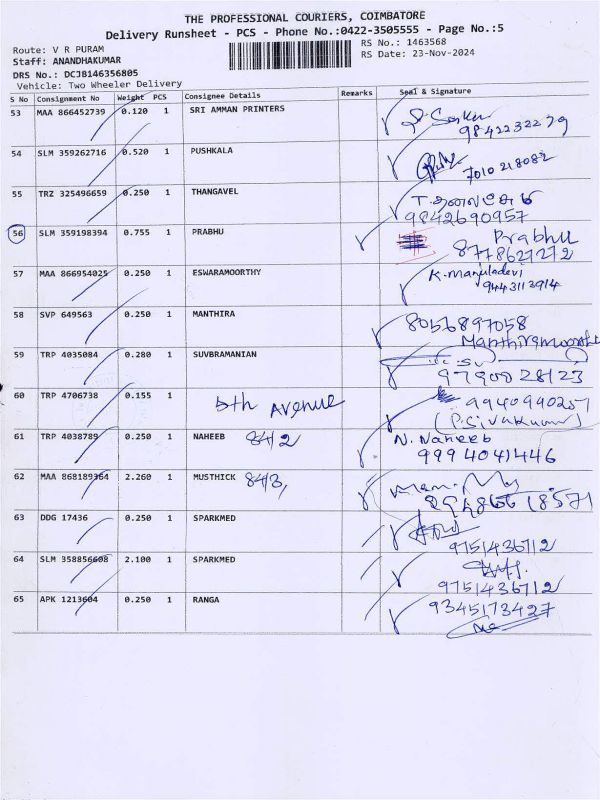 THE PROFESSIONAL COURIERS, COIMBATORE
Delivery Runsheet - PCS - Phone No.:0422-3505555 - Page No.:5
Route: V R PURAM RS No.: 1463568
Staff: ANANDHAKUMAR RS Date: 23-Nov-2024
DRS No.: DCJB146356805
Vehicle: Two Wheeler Delivery
S No Consignment No Weight PCS Consignee Details Remarks Seal & Signature
53 MAA 866452739 0.120 1 SRI AMMAN PRINTERS
9842232279
54 SLM 359262716 0.520 1 PUSHKALA 7010218082
55 TRZ 325496659 0.250 1 THANGAVEL
9842690957
56 SLM 359198394 0.755 1 PRABHU Prabhu
8778627272
57 MAA 866954025 0.250 1 ESWARAMOORTHY K. Manjuladevi
9443113914
58 SVP 649563 0.250 1 MANTHIRA 8056897058
Manthiramoorthi
59 TRP 4035084 0.280 1 SUVBRAMANIAN
9790828123
60 TRP 4706738 0.155 1 5th Avenue 9940990257
(P.Sivakumar)
61 TRP 4038789 0.250 1 NAHEEB 84/2 N. Naheeb
9994041446
62 MAA 868189364 2.260 1 MUSTHICK 84/3,
63 DDG 17436 0.250 1 SPARKMED
9751436712
64 SLM 358856608 2.100 1 SPARKMED
9751436712
65 APK 1213604 0.250 1 RANGA 9345173427